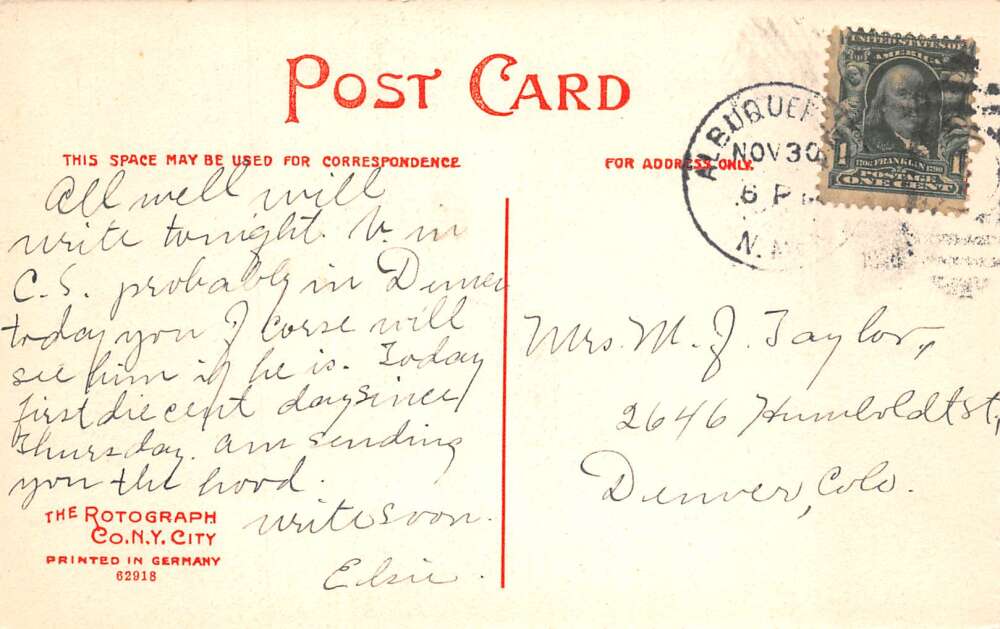 POST CARD
THIS SPACE MAY BE USED FOR CORRESPONDENCE
FOR ADDRESS ONLY.
UNITED STATES OF
AMERICA
1706 FRANKLIN 1790
POSTAGE
1 ONE CENT 1
ALBUQUER
NOV 30
6 P
N. M
All well will
write tonight. V. in
C. S. probably in Denver
today you J corse will
see him if he is. Today
first die cent day since
Thursday. am sending
you the hood.
write soon.
Elsie.
Mrs. M. J. Taylor,
2646 Humboldt St,
Denver, Colo.
THE ROTOGRAPH
CO. N.Y. CITY
PRINTED IN GERMANY
62918